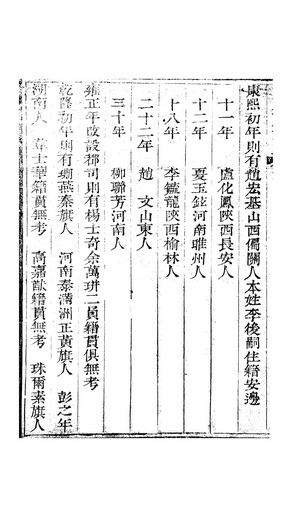 康熙初年則有趙宏基山西偏關人本姓李後嗣住籍安邊
十一年 盧化鳳陝西長安人
十二年 夏玉鉉河南睢州人
十八年 李毓龍陝西榆林人
二十二年 趙 文山東人
三十年 柳聯芳河南人
雍正年改設都司則有楊士奇余萬琲二員籍貫俱無考
乾隆初年則有燕秦旗人 河南泰滿洲正黃旗人 彭之年
湖南人 韋士華籍貫無考 高嘉猷籍貫無考 珠爾素旗人